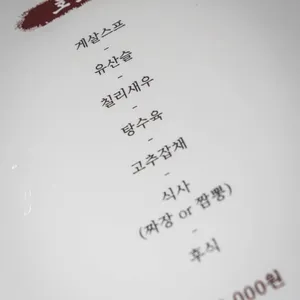 게살스프
-
유산슬
-
칠리새우
-
탕수육
-
고추잡채
-
식사
(짜장 or 짬뽕)
-
후식
,000원